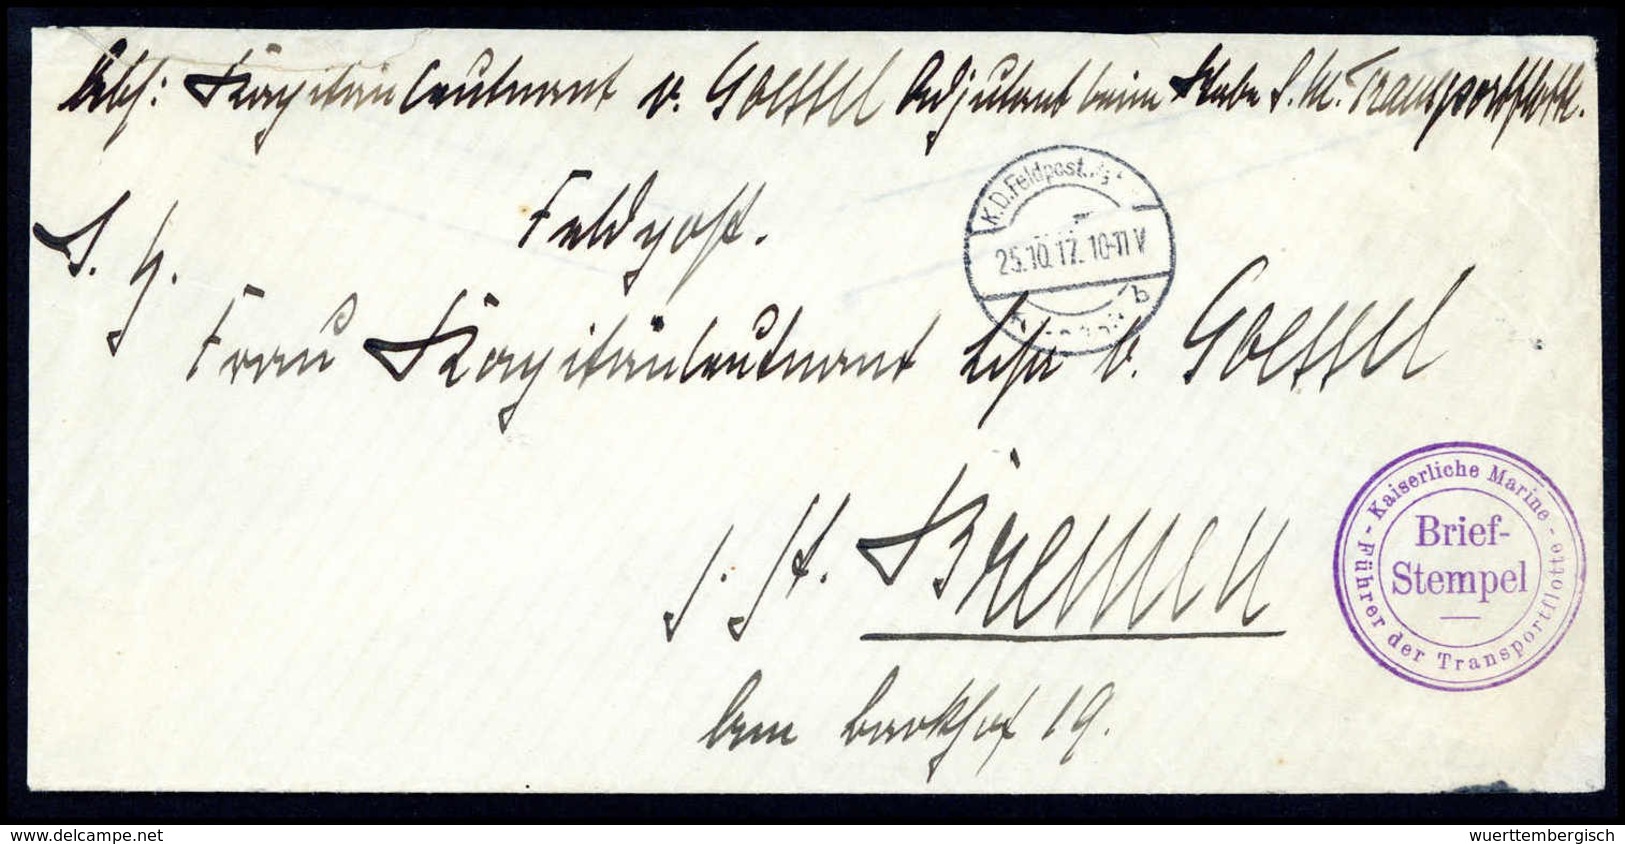 Abs: Kapitänleutnant v. Goessel Adjutant beim Stabe S.M. Transportflotte.
Feldpost.
K.D. Feldpost
25.10.17. 10-11 V
b
S. H.
Frau Kapitänleutnant v. Goessel
Kaiserliche Marine
Brief-
Stempel
Führer der Transportflotte
Bremen
19.
www.delcampe.net
wuerttembergisch